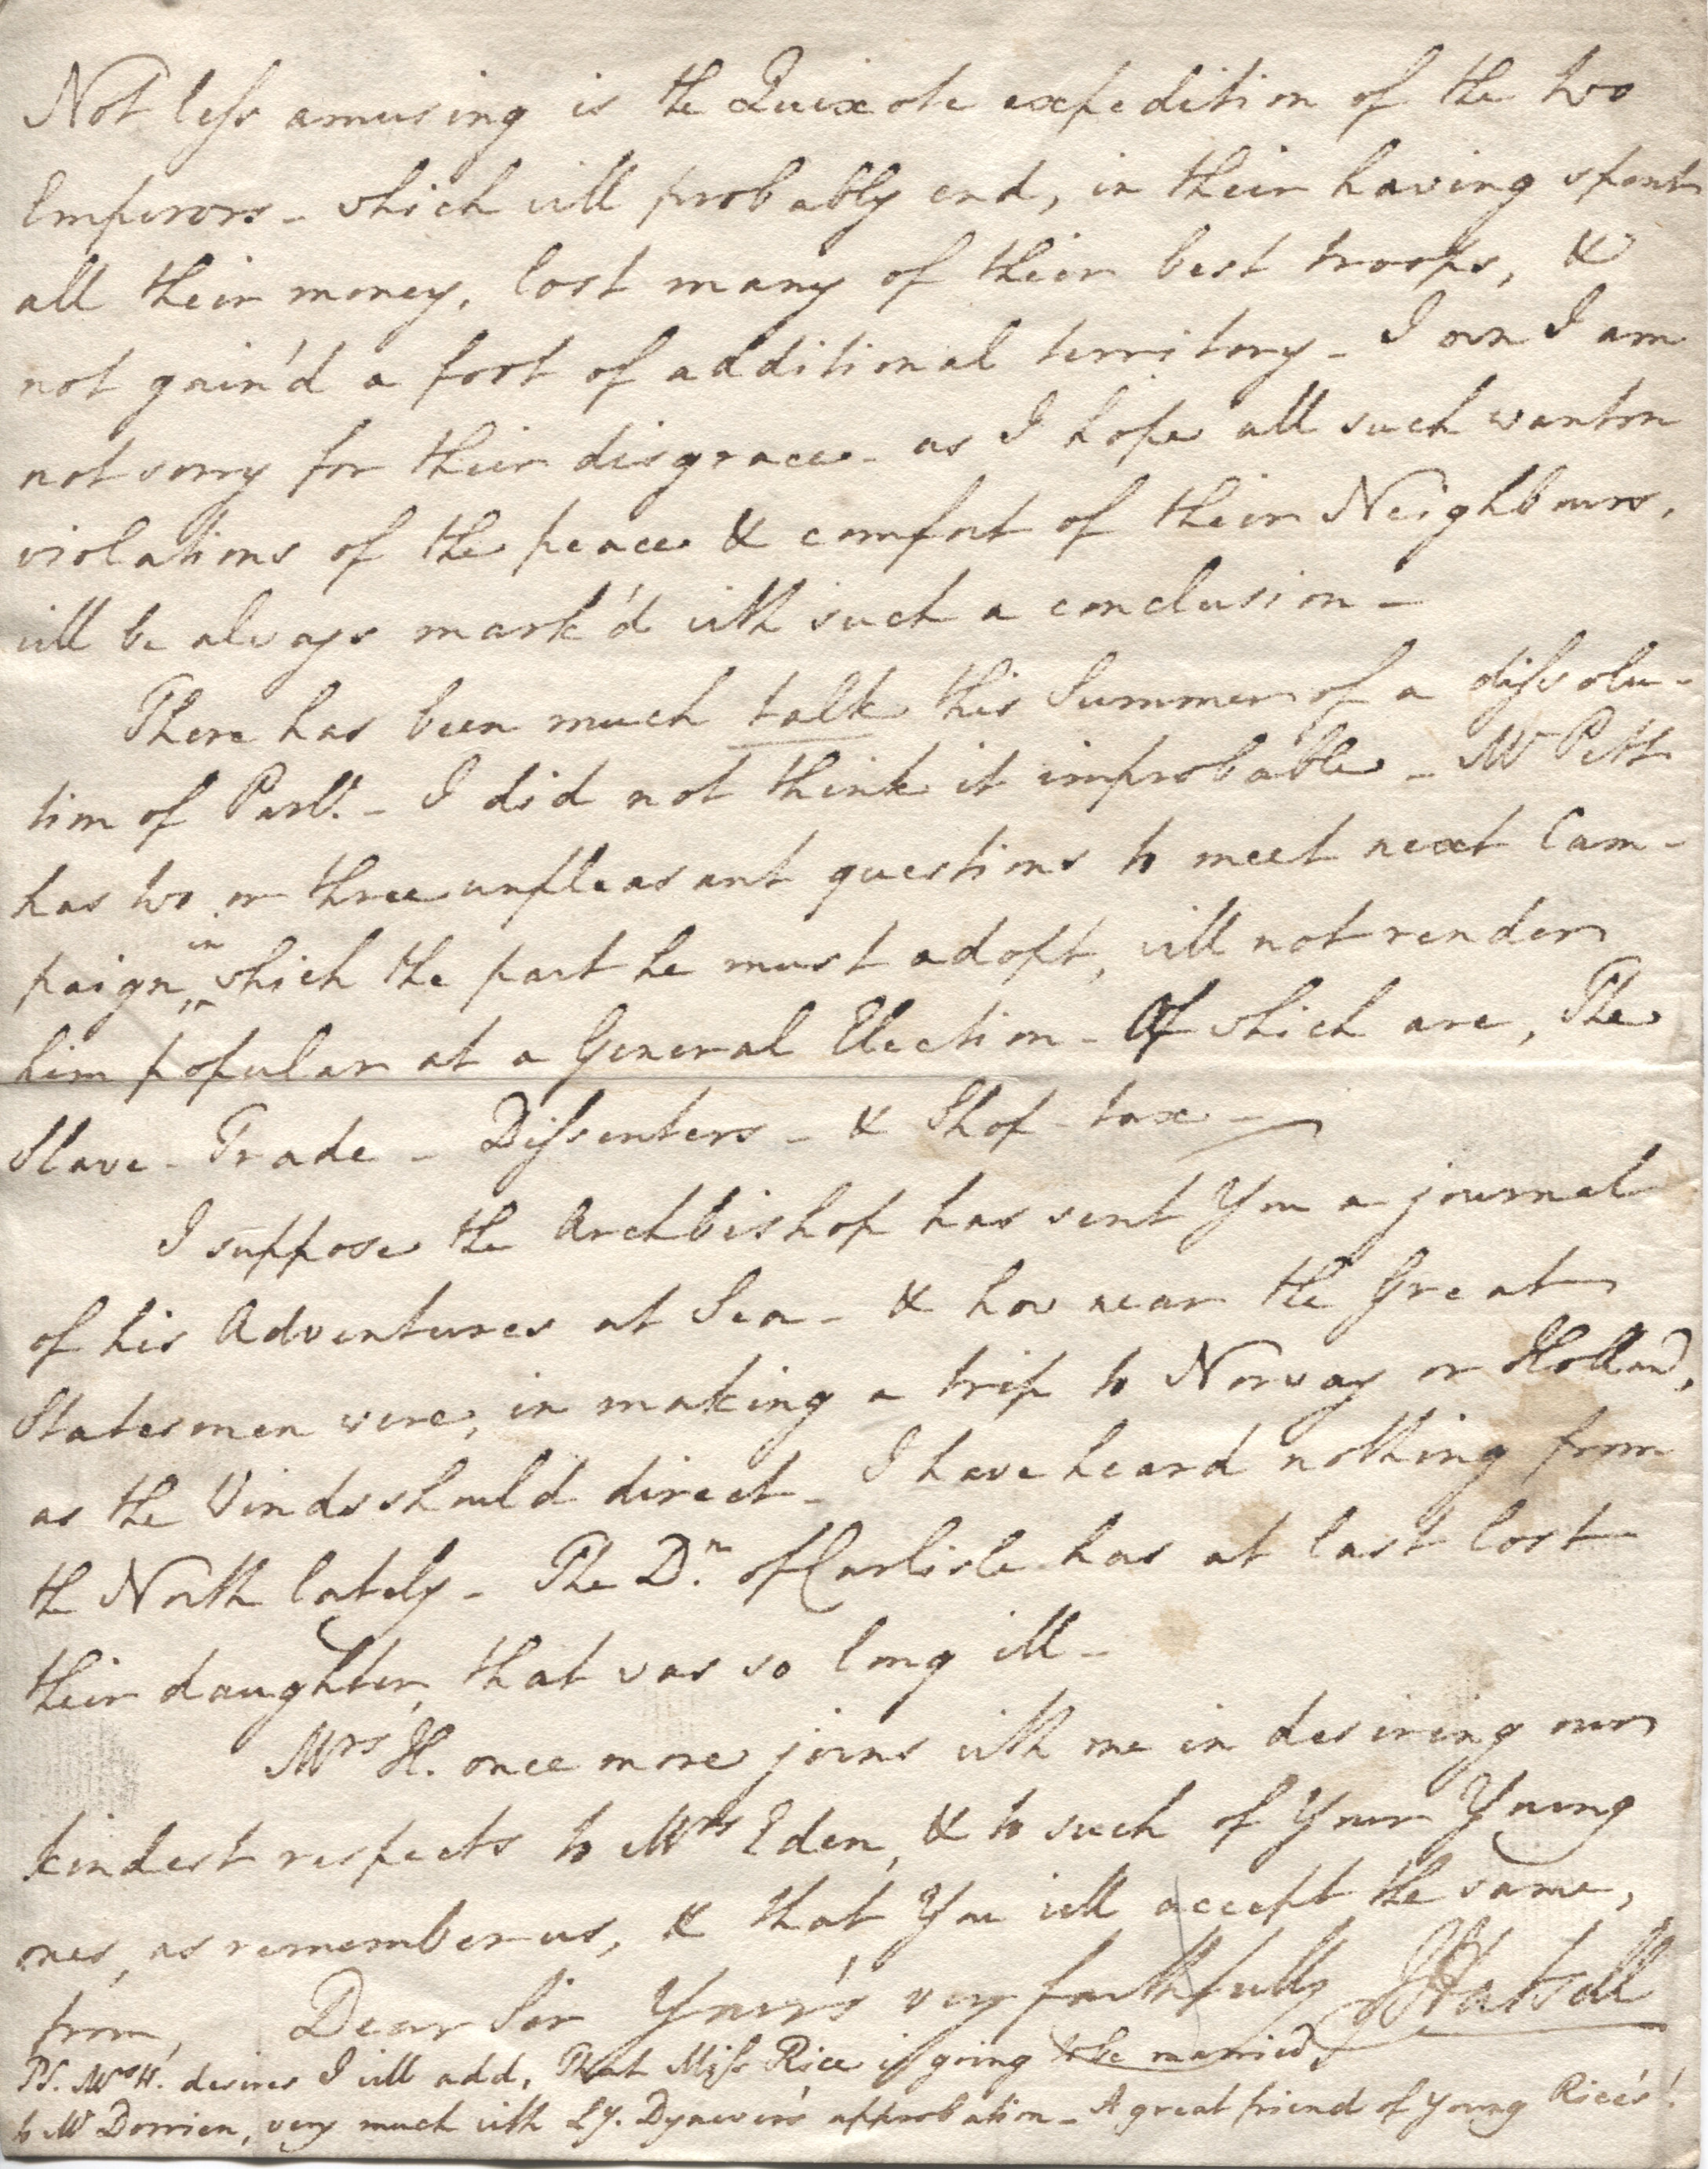 Not less amusing is the Quixote expedition of the two
Emperors - which will probably end, in their having spent
all their money, lost many of their best troops, &
not gain'd a foot of additional territory - I own I am
not sorry for their disgrace - as I hope all such wanton
violations of the peace & comfort of their Neighbours,
will be always mark'd with such a conclusion -
There has been much talk this Summer of a dissolu-
tion of Parlt. - I did not think it improbable - Mr Pitt
has two or three unpleasant questions to meet next Cam-
paign in which the part he must adopt, will not render
him popular at a General Election - Of which are, The
Slave - Trade - Dissenters - & Shop-tax -
I suppose the Archbishop has sent You a journal
of his Adventures at Sea - & how near the Great
Statesmen were, in making a trip to Norway or Holland,
as the Winds should direct - I have heard nothing from
the North lately - The Dn. of Carlisle has at last lost
their daughter, that was so long ill -
Mrs H. once more joins with me in desiring our
kindest respects to Mrs Eden, & to such of Your Young
ones, as remember us, & that You will accept the same,
from, Dear Sir Your's very faithfully JHatsell
PS. Mrs H. desires I will add, That Miss Rice is going to be married,
to Mr Dorrien, very much with Ly. Dynevor's approbation - A great friend of young Rice's!